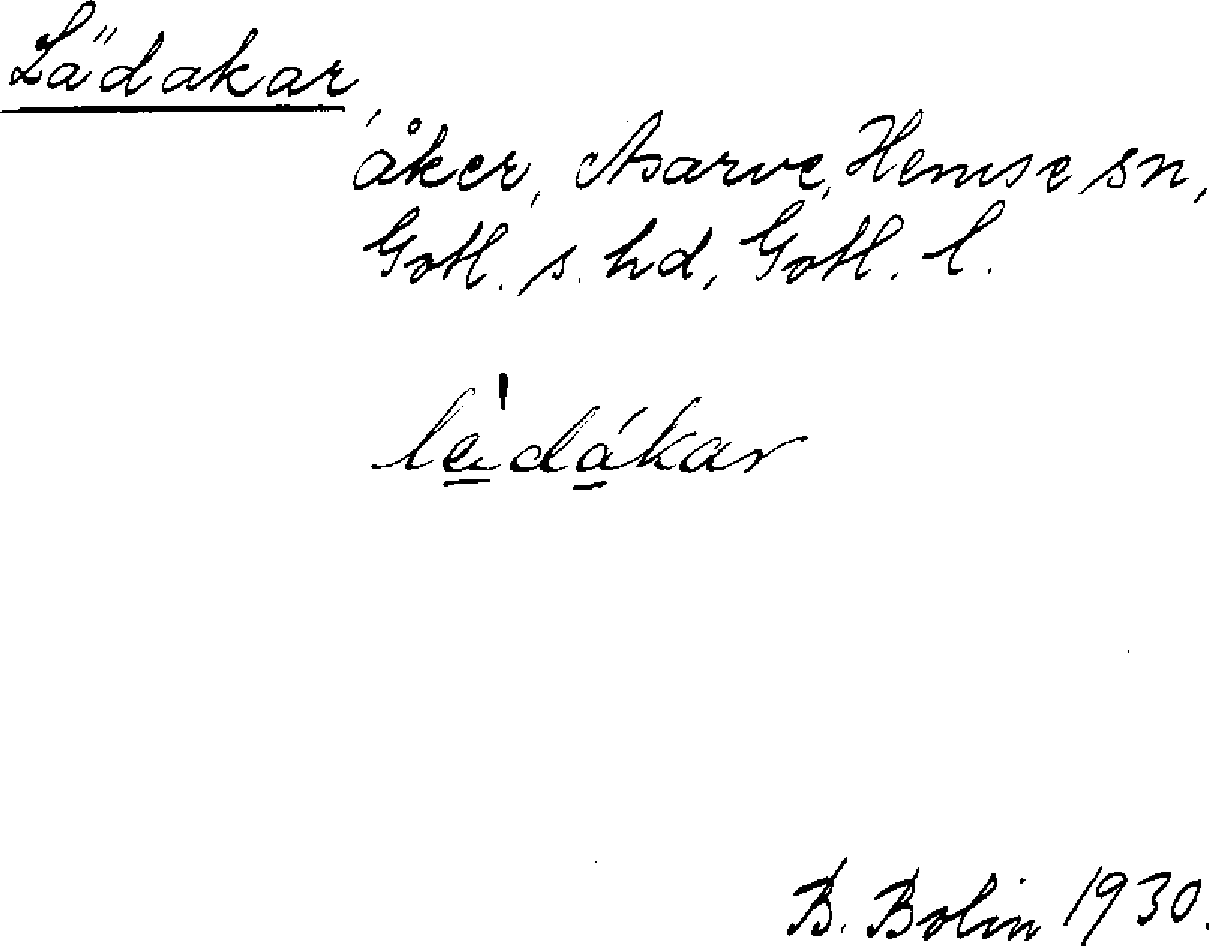 Lädakar,
åker, Asarve, Hemse sn,
Gotl. s. hd, Gotl. l.
lädákar
B. Bolin 1930.